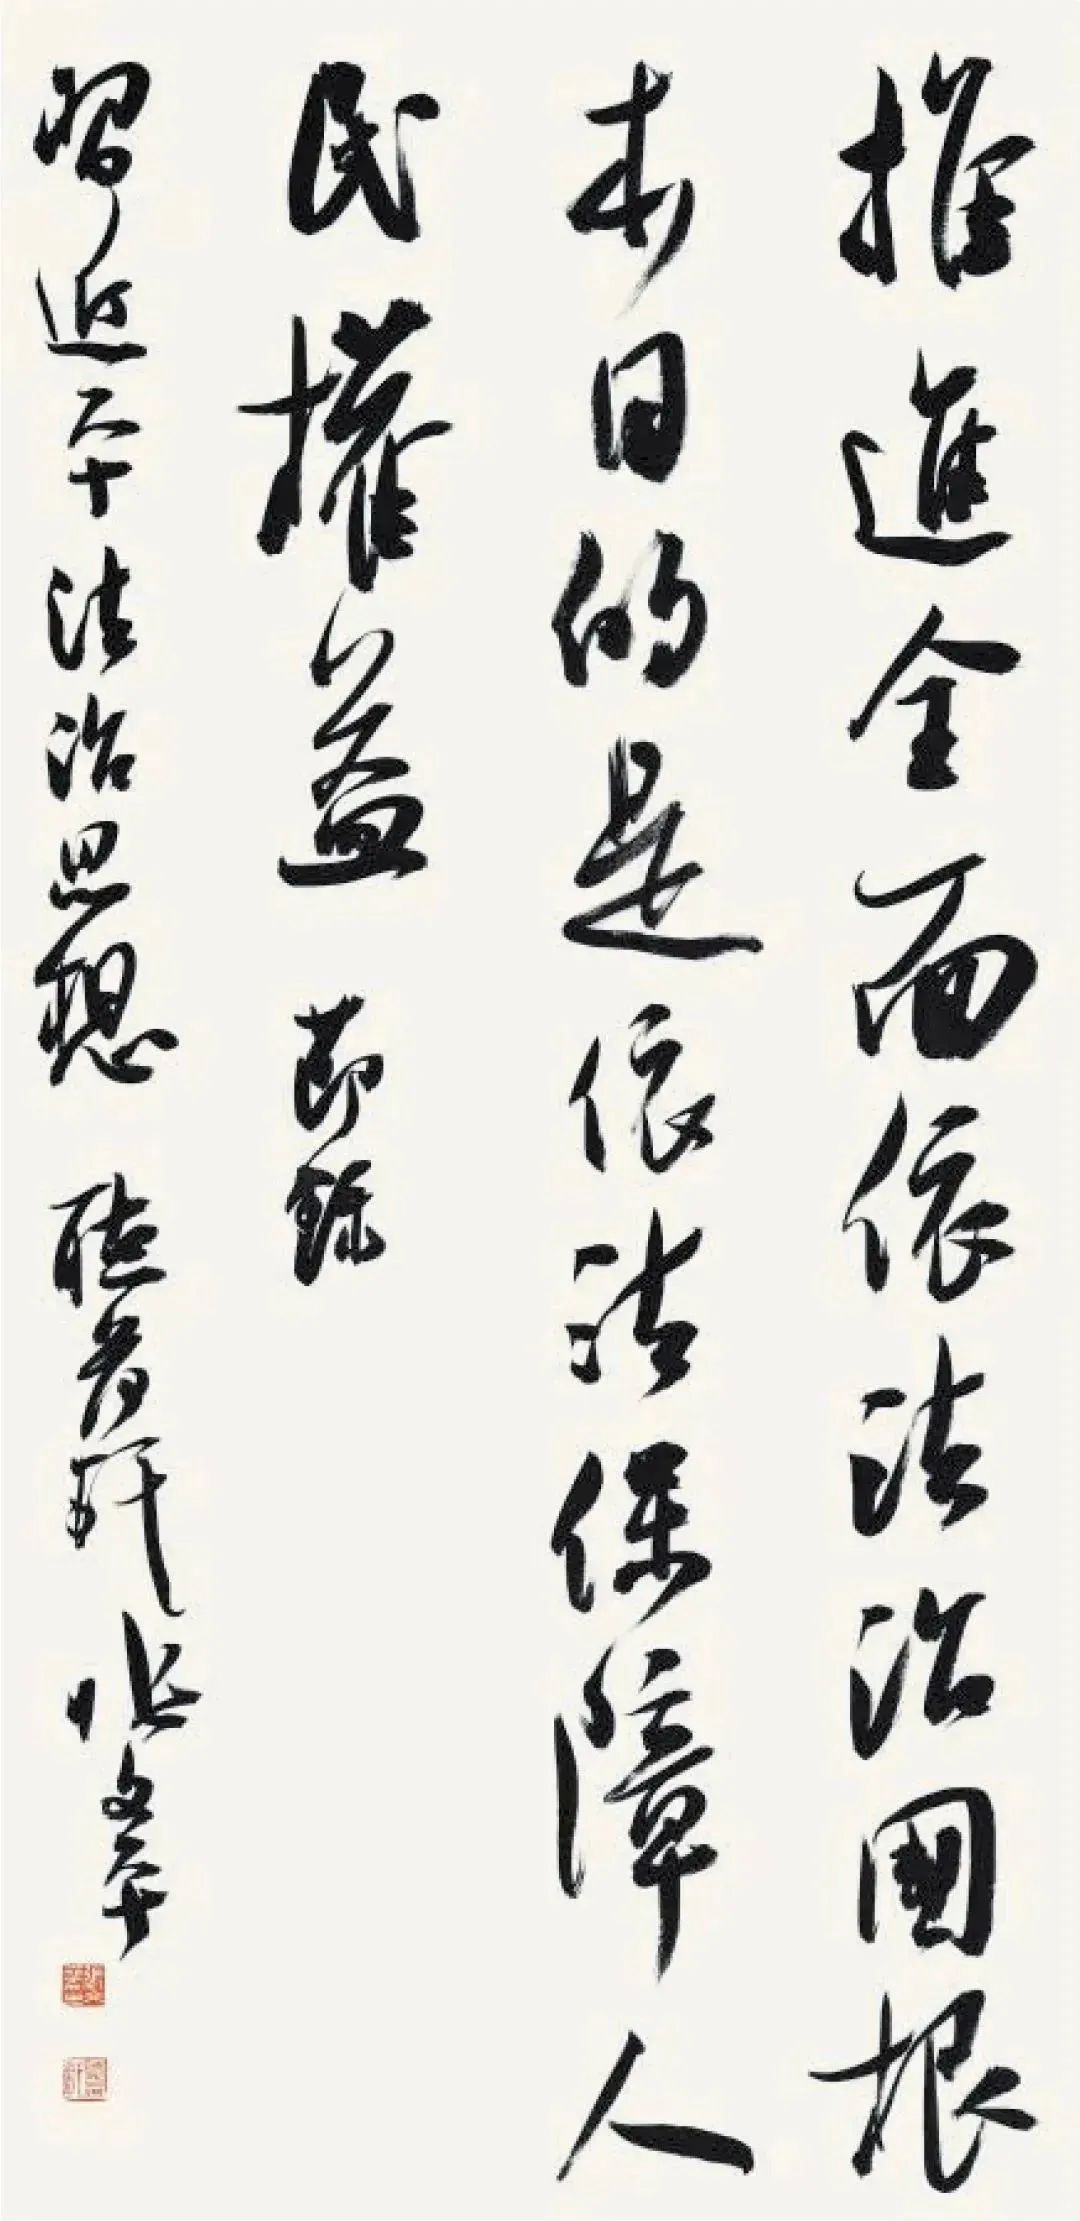 推進全面依法治國根
本目的是依法保障人
民權益 節録
習近平法治思想 軒 張文平